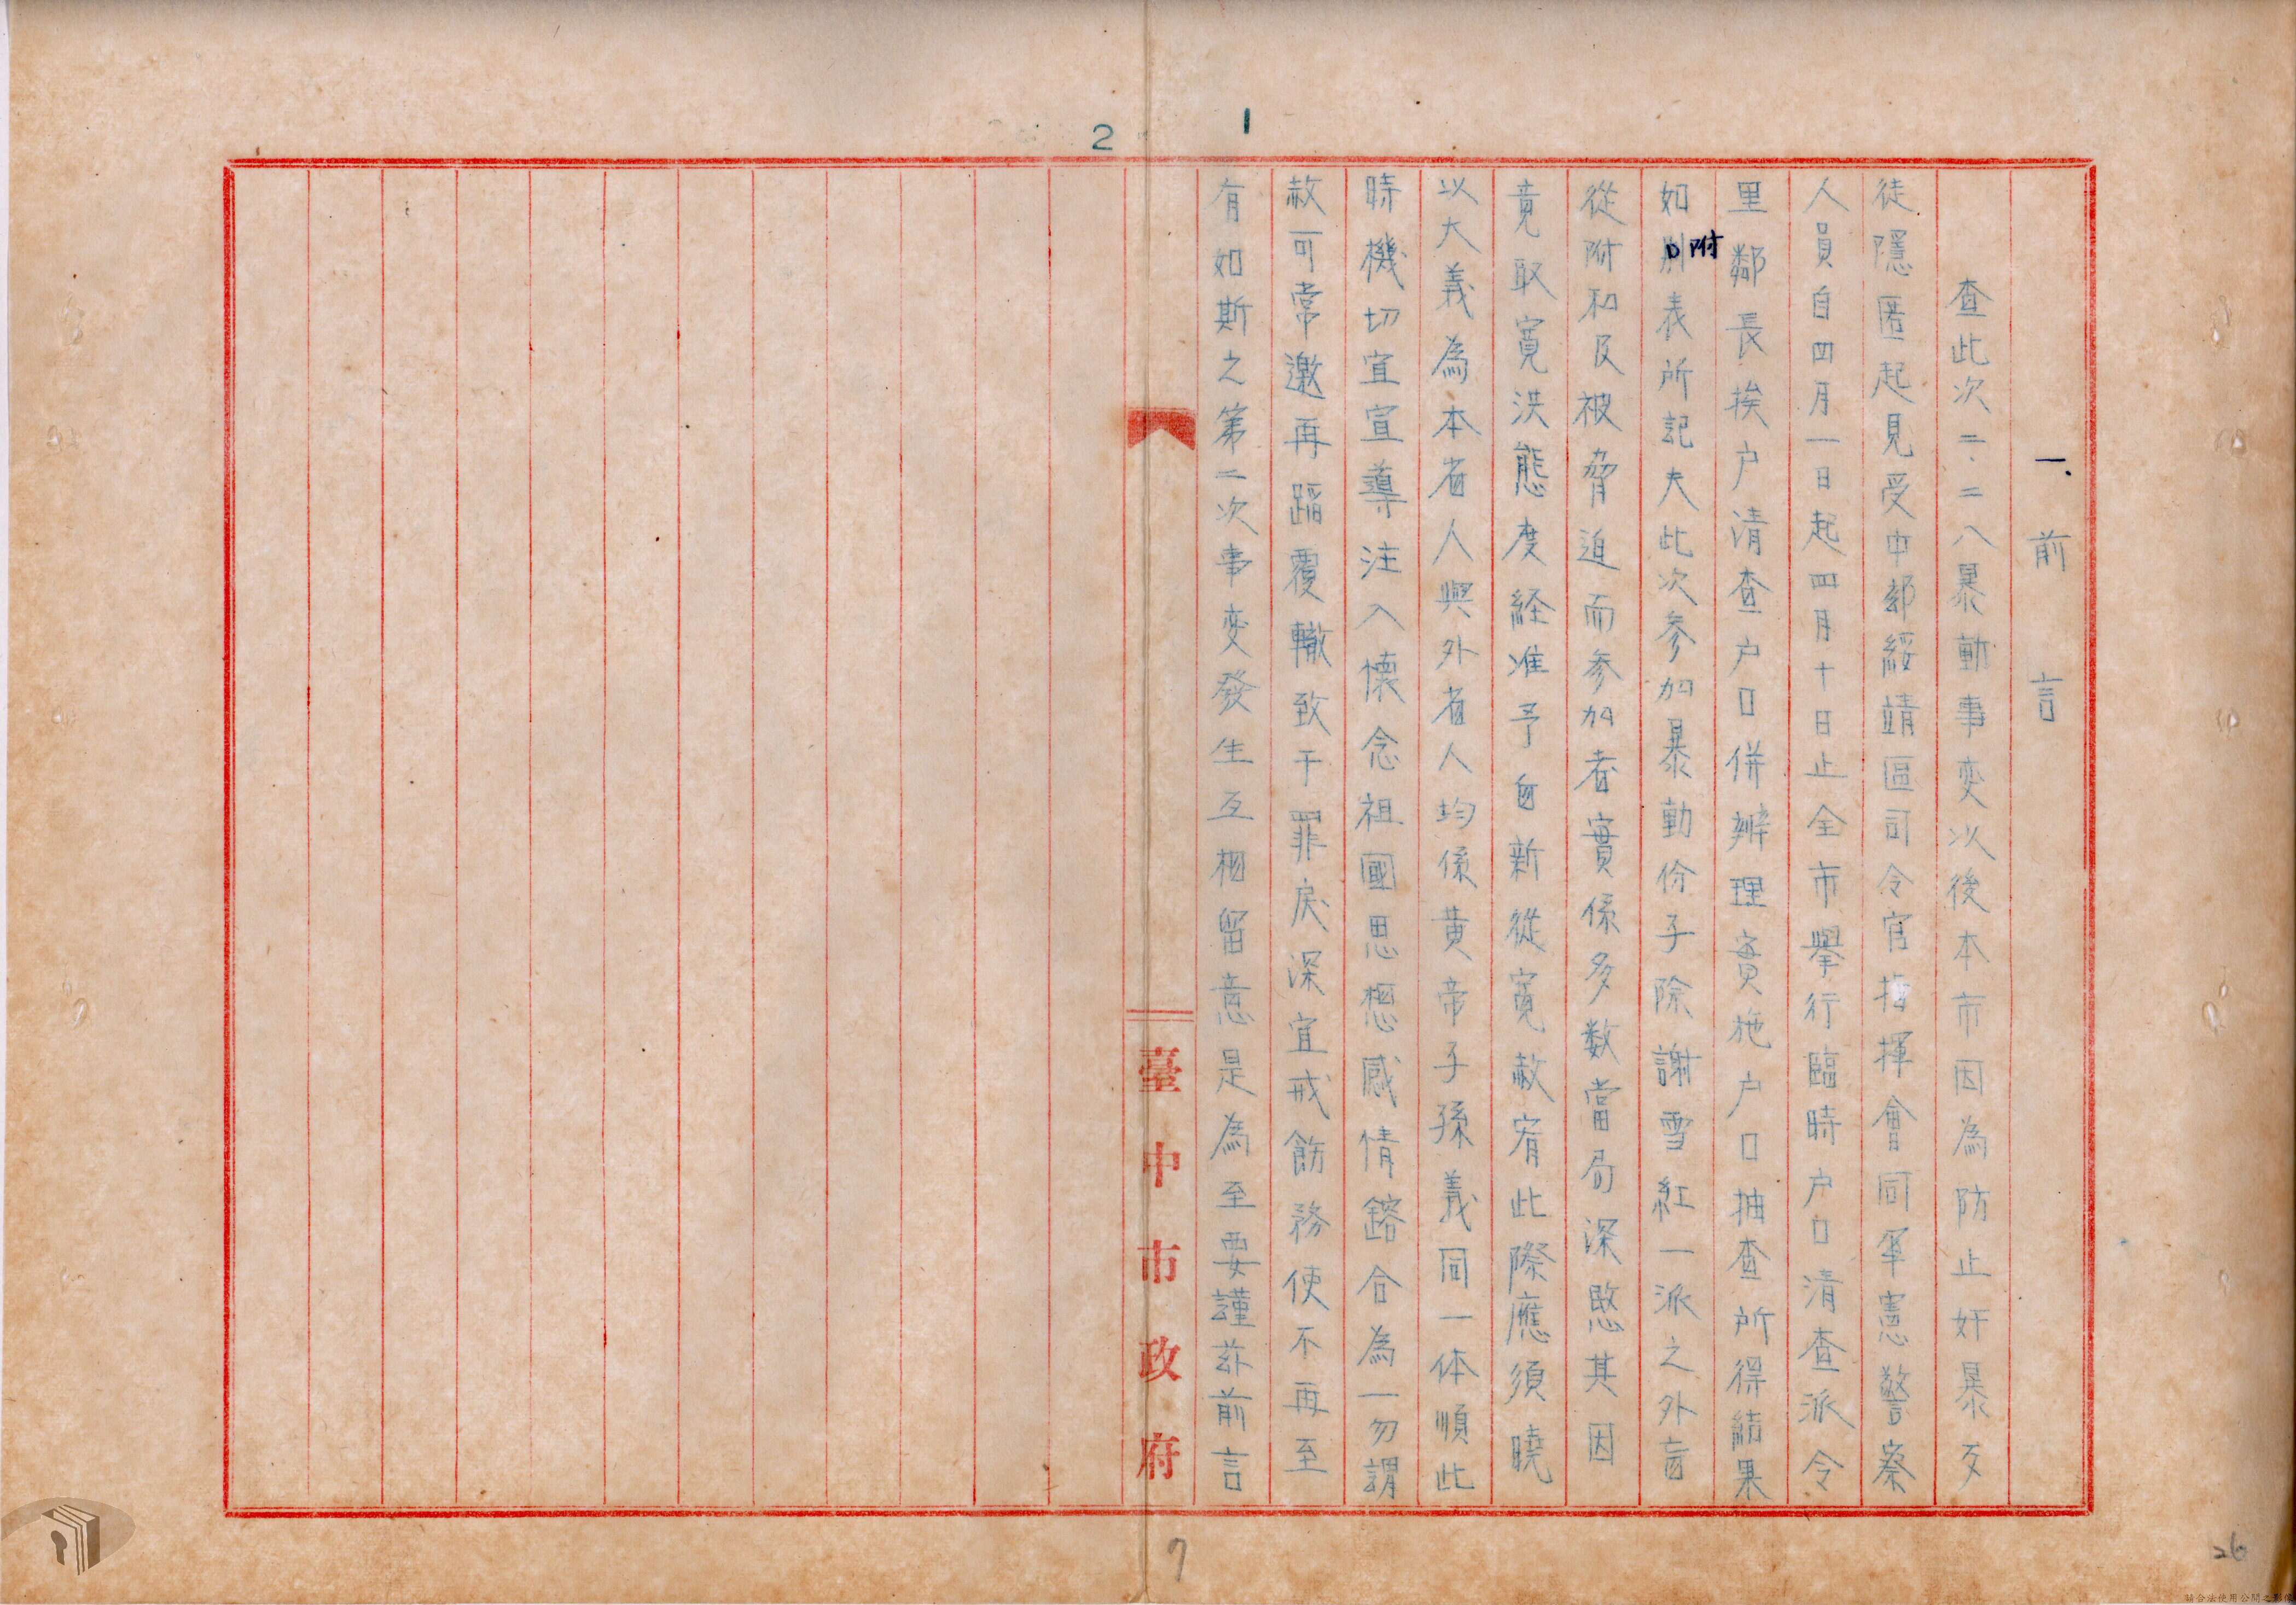 1
2
一、前言
查此次二、二八暴動事变以後本市因為防止奸暴歹
徒隱匿起見受中部綏靖區司令官指揮會同軍憲警察
人員自四月一日起四月十日止全市舉行臨時户口清查派令
里鄰長挨户清查户口併辦理實施户口抽查所得結果
如附表所記夫此次参加暴動份子除謝雪紅一派之外盲
從附和及被脅迫而参加者實係多数當局深愍其因
竟取寬洪態度経准予自新從寬赦宥此際應須曉
以大義為本省人與外省人均係黄帝子孫義同一体順此
時機切宜宣導注入懷念祖國思想感情鎔合為一勿謂
赦可常邀再蹈覆轍致干罪戾深宜戒飭務使不再至
有如斯之第二次事变發生互相留意是為至要謹玆前言
臺中市政府
7
26